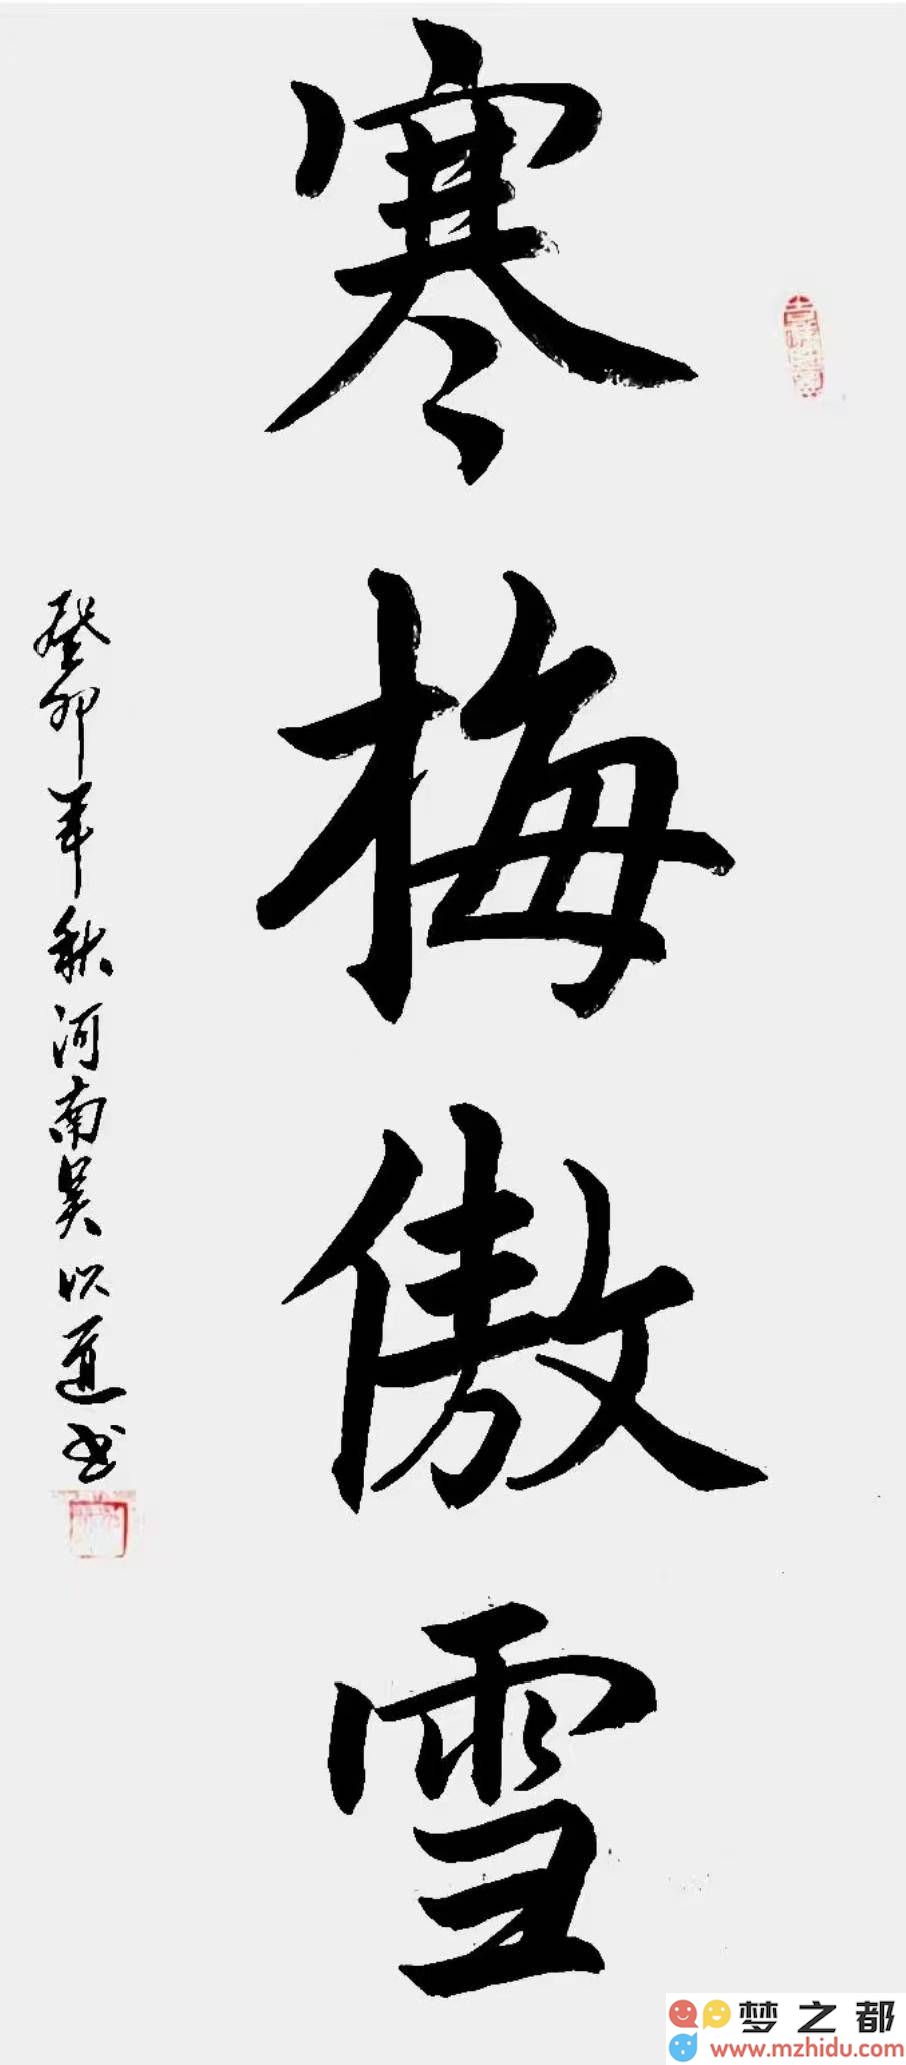 寒梅傲雪
癸卯年秋河南吴以道书
梦之都
www.mzhidu.com